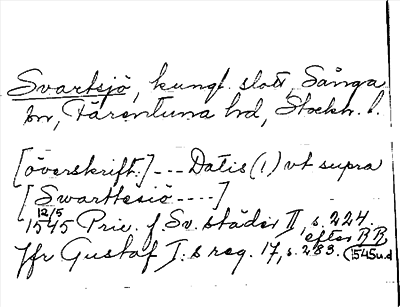 Svartsjö, kungl. slott, Sånga
sn, Färentuna hd, Stockh. l.
[överskrift:] --- Datis (!) vt supra
[Swarttesiö ----]
12/5
1545 Priv. f. Sv. städer II, s. 224.
efter RR
Jfr Gustaf I:s reg. 17, s. 283. (1545 u.d